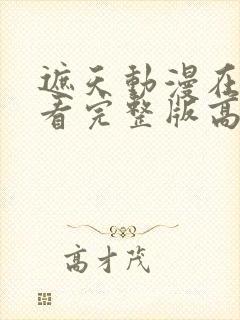 遮天動漫在
看完整版高
高才茂